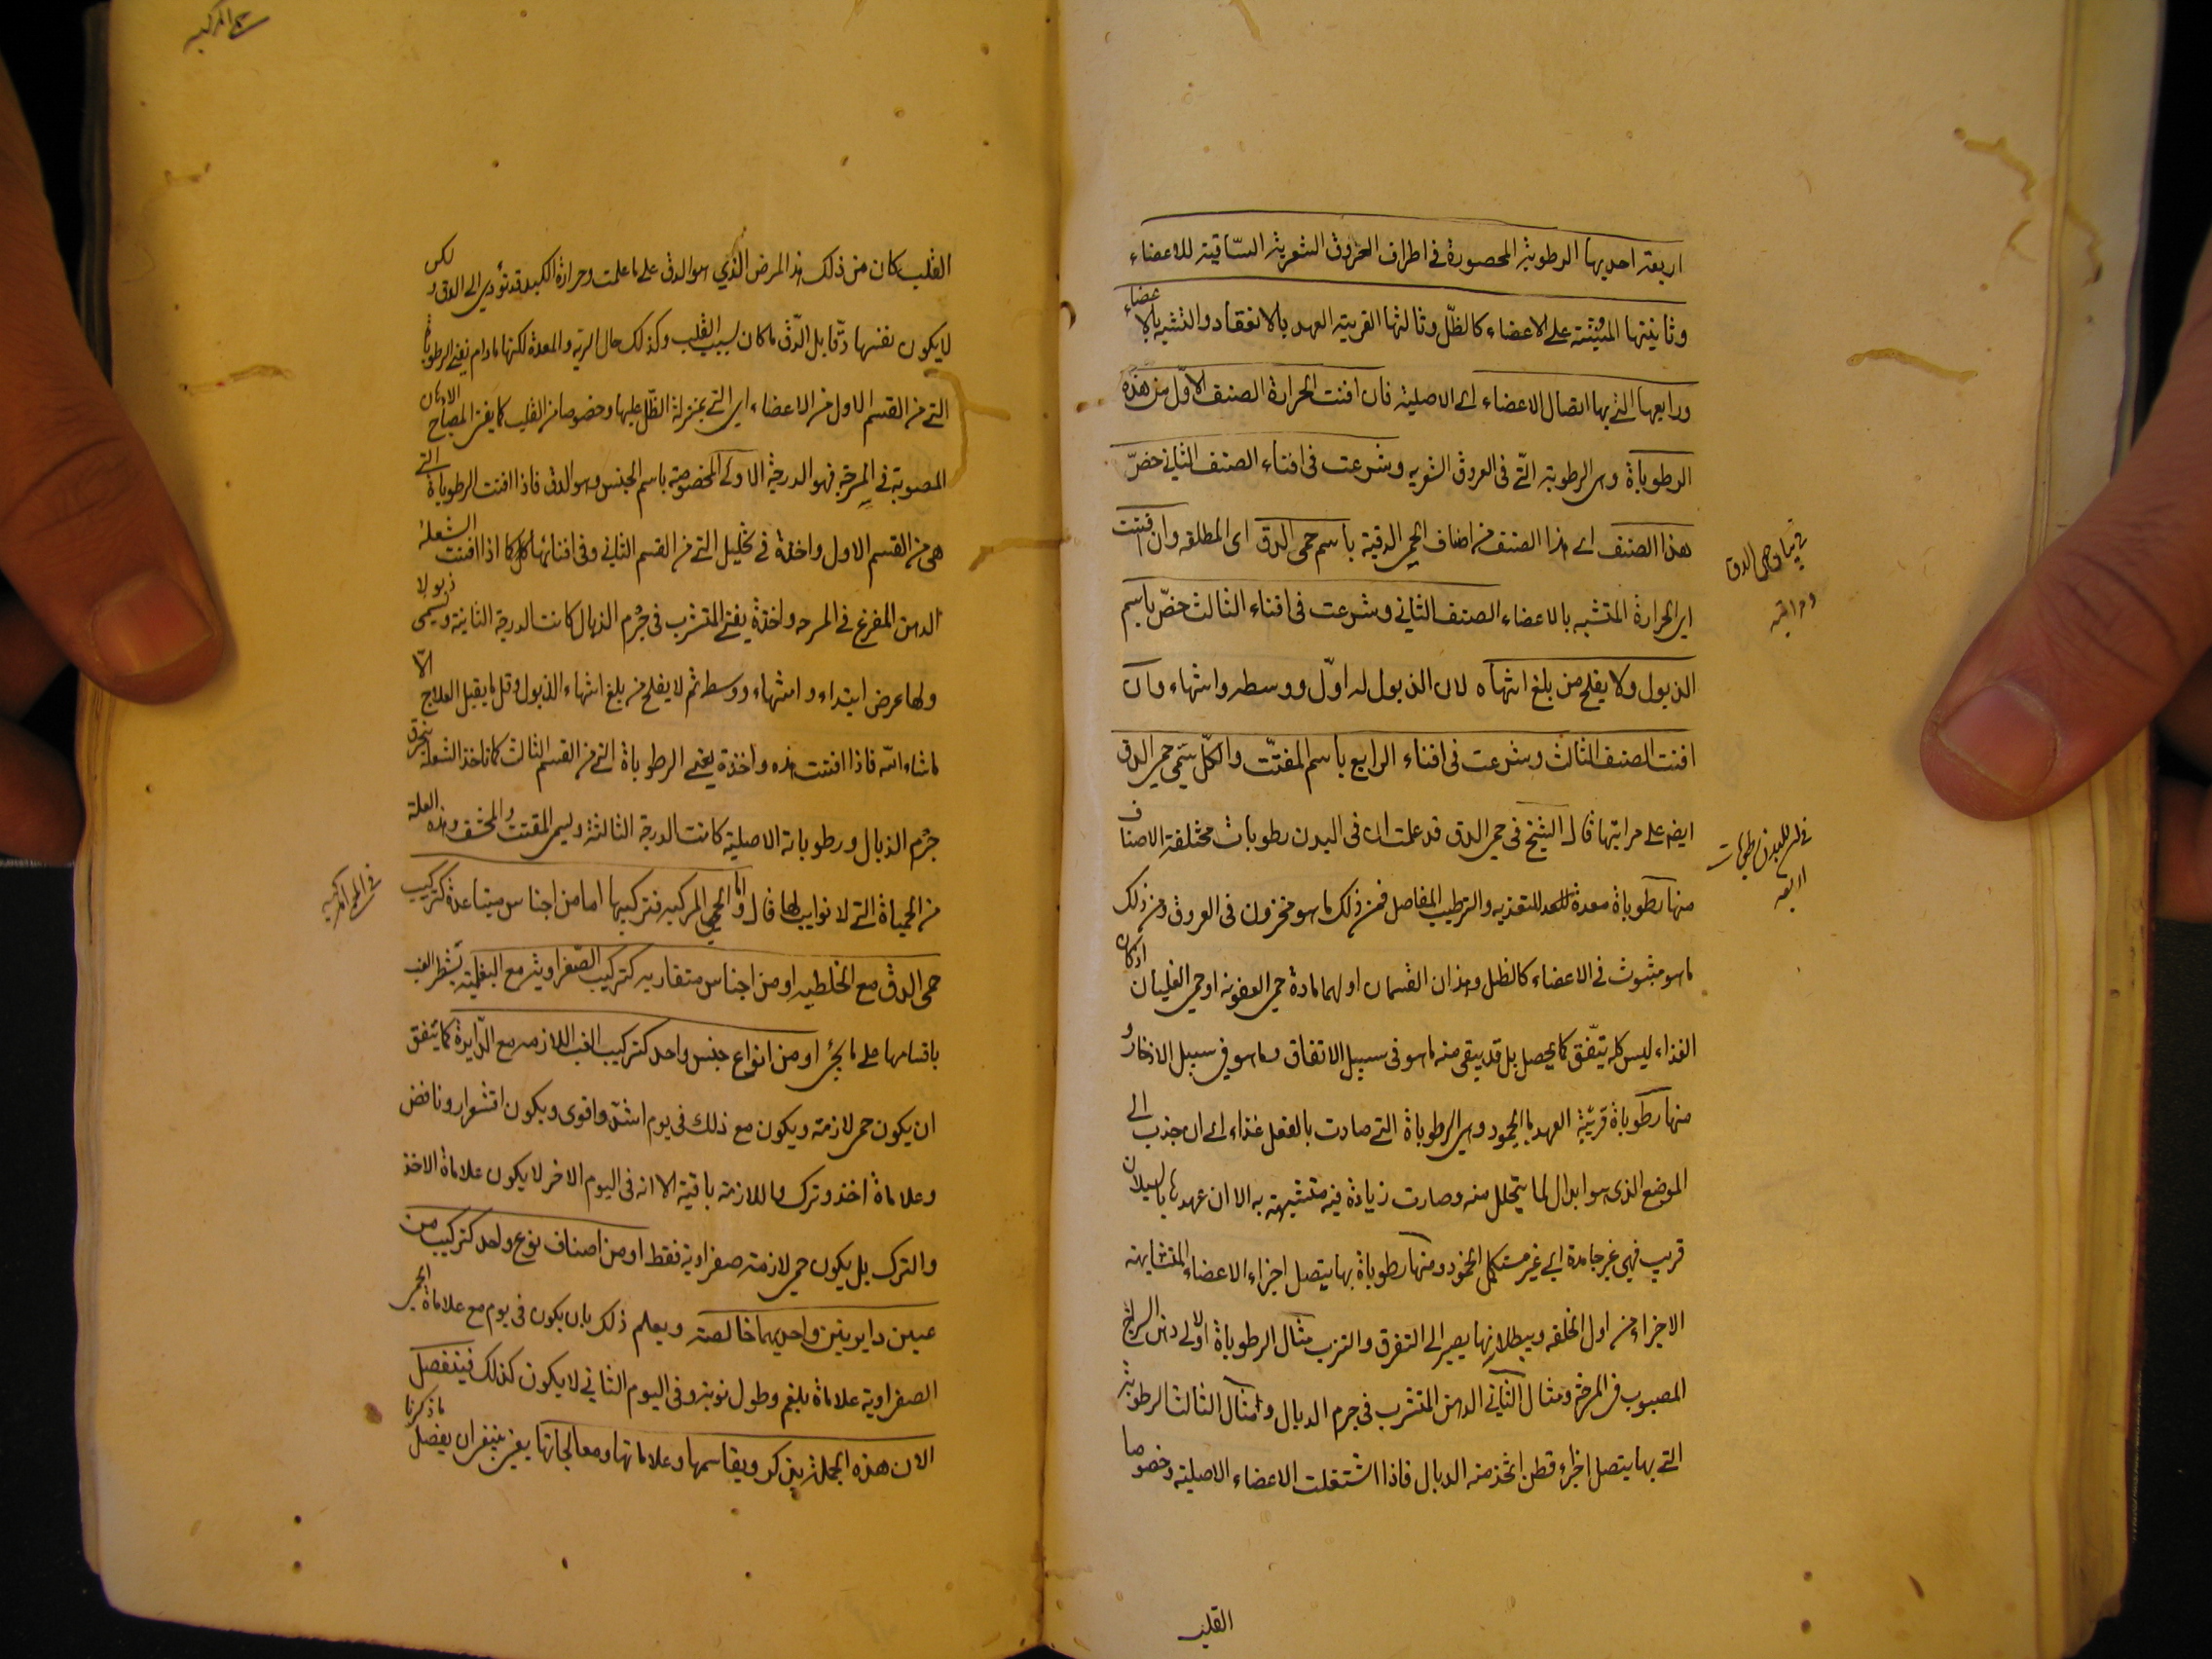 اربعة احديها الرطوبة المحصورة فى اطراف العروق الشعرية الساقية للاعضاء
وثانيتها المنبثة على الاعضاء كالطل وثالثها القريبة العهد بالانعقاد والتشبه بالاعضاء
ورابعها التى بها اتصال الاعضاء اى الاصلية فان افنت الحرارة الصنف الاول من هذه
الرطوباة وهى الرطوبة التى فى العروق الشعريه وشرعت فى افناء الصنف الثانى خصّ
هذا الصنف اى هذا الصنف من اصناف الحمى الدقية باسم حمى الدق اى المطلقه وان افنيت
اى الحرارة المتشبه بالاعضاء الصنف الثانى وشرعت فى افناء الثالث خصّ باسم
الذبول ولا يفلح من بلغ انتهاه لان الذبول له اوّل ووسط وانتهاء وان
افنت الصنف الثالث وشرعت فى افناء الرابع باسم المفتّت والكلّ يسمى حمى الدق
ايضا على مراتبها قال الشيخ فى حمى الدق قد علمت ان فى البدن رطوبات مختلفة الاصناف
منها رطوباة معدة للتغذيه والترطيب المفاصل فمن ذلك ما هو مخزون فى العروق ومن ذلك
ما هو مبثوث فى الاعضاء كالطل وهذان القسمان اولهما مادة حمى العفونه او حمى الغليان اذ كان
الغذاء ليس كله يتّفق كما يحصل بل قد يبقى منه ما هو فى سبيل الاتفاق وما هو فى سبيل الادخار و
منها رطوباة قريبة العهد بالجمود وهى الرطوباة التى صارت بالفعل غذاء اى ان جذب الى
الموضع الذى هو ابدال لما يتحلل منه وصارت زيادة فيه متشبهة به الا ان عهدها بالسيلان
قريب فهى غير جامدة اى غير مستكمل الجمود ومنها رطوباة بها يتصل اجزاء الاعضاء المتشابهة
الاجزاء من اول الخلقه وببطلانها يصير الى التفرق والترب مثال الرطوباة الاولى دهن السراج
المصبوب فى المسرجة ومثال الثانى الدهن المتشرب فى جرم الدبال ومثال الثالث الرطوبة
التى بها يتصل اجزاء قطن اتخذ منه الدبال فاذا اشتعلت الاعضاء الاصلية وخصوصا
القلب
فى بيان حمى الدق
ومراتبه
فى ان للبدن رطوبات
اربعه
القلب كان من ذلك هذا المرض الذي هو الدق على ما علمت وحرارة الكبد قد تؤدي الى الدق و لكن
لا يكون نفسها دقّا بل الدّق ما كان بسبب القلب وكذلك حال الريه والمعدة لكنها مادام يفنى الرطوباة
التى من القسم الاول من الاعضاء اى التى بمنزلة الطّل عليها وخصوصا من القلب كما يفنى المصباح الادهان
المصبوبة فى المسرجة فهو الدرجة الاولى المخصوصة باسم الجنس وهو الدق فاذا افنت الرطوباة التى
هى من القسم الاول واخذة فى تحليل التى من القسم الثانى وفى افنائها كما اذا افنت الشعلة
الدهن المفرغ فى المسرجه واخذة يفنى المتشرب فى جُرم الذبال كانت الدرجة الثانية ويسمى ذبولا
ولها عرض ابتداء وانتهاء ووسط ثم لا يفلح من بلغ انتهاء الذبول وقل ما يقبل العلاج الّا
ما شاء الله فاذا افنت هذه واخذة يفنى الرطوباة التى من القسم الثالث كما تاخذ الشعلة بحرق
جُرم الذبال ورطوباته الاصلية كانت الدرجة الثالثة ويسمى المفتت والمحشف وهذه العلة
من الحمياة التى لا نوايب لها قال واما الحمى المركبه فتركيبها اما من اجناس متباعدة كتركيب
حمى الدق مع الخلطيه او من اجناس متقاربه كتركيب الصفراوية مع البلغمية كشطر الغب
باقسامها على ما يجئ او من انواع جنس واحد كتركيب الغب اللازمه مع الدّايرة كما يتفق
ان يكون حمى لازمة ويكون مع ذلك فى يوم اشدّ واقوى ويكون اقشعرار ونافض
وعلاماة اخذ وترك واللازمة باقية الا انه فى اليوم الاخر لا يكون علاماة الاخذ
والترك بل يكون حمى لازمة صفراوية فقط او من اصناف نوع واحد كتركيب من
غبين دايرتين واحديهما خالصة ويعلم ذلك بان يكون فى يوم مع علاماة الحمى
الصفراوية علاماة بلغم وطول نوبة وفى اليوم الثانى لا يكون كذلك فينفصل
الان هذه الجملة بذكر وبقاسمها وعلاماتها ومعالجاتها يعنى ينبغى ان يفصل ما ذكرنا
فى الحمى المركبه
حمى المركبه